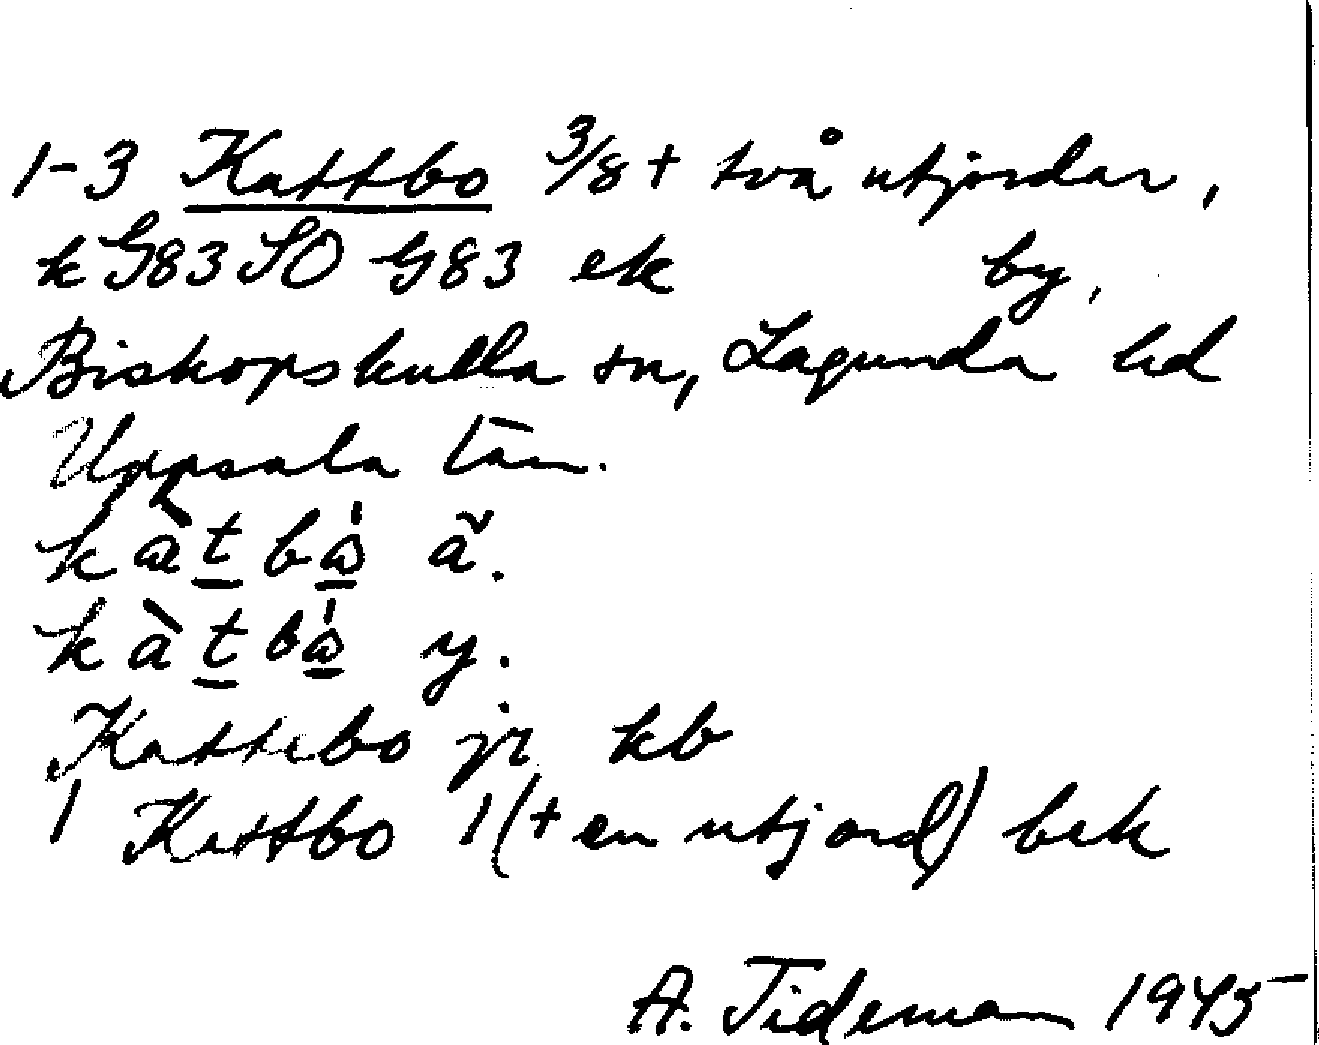 1-3 Kattbo 3/8 + två utjordar,
k G83 SO G83 ek by,
Biskopskulla sn, Lagunda hd
Uppsala län.
kàt bå̀ ä.
kàt bå̀ y.
Kattebo jr kb
1 Kattbo 1 (+ en utjord) bek
A. Tideman 1945